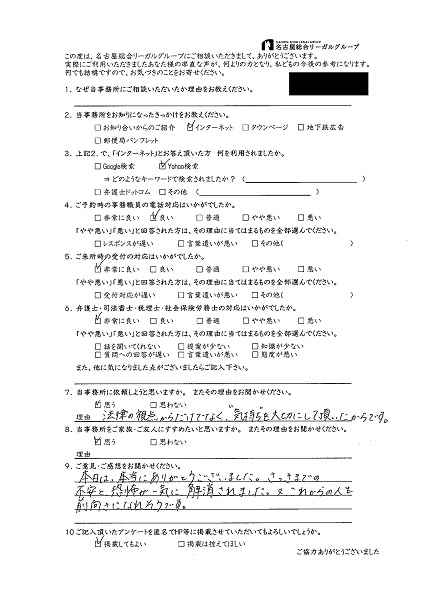 NAGOYA SOGO LEGAL GROUP
名古屋総合リーガルグループ
この度は、名古屋総合リーガルグループにご相談いただきまして、ありがとうございます。
実際にご利用いただきましたあなた様の率直な声が、何よりの力となり、私どもの今後の参考になります。
何でも結構ですので、お気づきのことをお寄せください。
1. なぜ当事務所にご相談いただいたか理由をお教えください。
2. 当事務所をお知りになったきっかけをお教えください。
□お知り合いからのご紹介 ☑インターネット □タウンページ □地下鉄広告
□郵便局パンフレット
3. 上記2. で、「インターネット」とお答え頂いた方 何を利用されましたか。
□Google検索 ☑Yahoo検索
⇒どのようなキーワードで検索されましたか? ( )
□弁護士ドットコム □その他 ( )
4. ご予約時の事務職員の電話対応はいかがでしたか。
□非常に良い ☑良い □普通 □やや悪い □悪い
「やや悪い」「悪い」と回答された方は、その理由に当てはまるものを全部選んでください。
□レスポンスが遅い □言葉遣いが悪い □その他( )
5. ご来所時の受付の対応はいかがでしたか。
☑非常に良い □良い □普通 □やや悪い □悪い
「やや悪い」「悪い」と回答された方は、その理由に当てはまるものを全部選んでください。
□受付対応が遅い □言葉遣いが悪い □その他( )
6. 弁護士・司法書士・税理士・社会保険労務士の対応はいかがでしたか。
☑非常に良い □良い □普通 □やや悪い □悪い
「やや悪い」「悪い」と回答された方は、その理由に当てはまるものを全部選んでください。
□話を聞いてくれない □提案が少ない □知識が少ない
□質問への回答が遅い □言葉遣いが悪い □態度が悪い
また、他に気になりました点がございましたらご記入下さい。
7. 当事務所に依頼しようと思いますか。 またその理由をお聞かせください。
☑思う □思わない
理由 法律の観点からだけでなく、"気持ち"を大切にして頂いたからです。
8. 当事務所をご家族・ご友人にすすめたいと思いますか。 またその理由をお聞かせください。
☑思う □思わない
理由
9. ご意見・ご感想をお聞かせください。
本日は、本当にありがとうございました。さっきまでの
不安と恐怖が一気に解消されました。又これからの人生
前向きになれそうです。
10 ご記入頂いたアンケートを匿名でHP等に掲載させていただいてもよろしいでしょうか。
☑掲載してもよい □掲載は控えてほしい
ご協力ありがとうございました